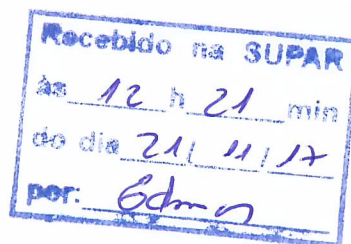 Recebido na SUPAR
às 12 h 21 min
do dia 21/ 11/ 17
por: